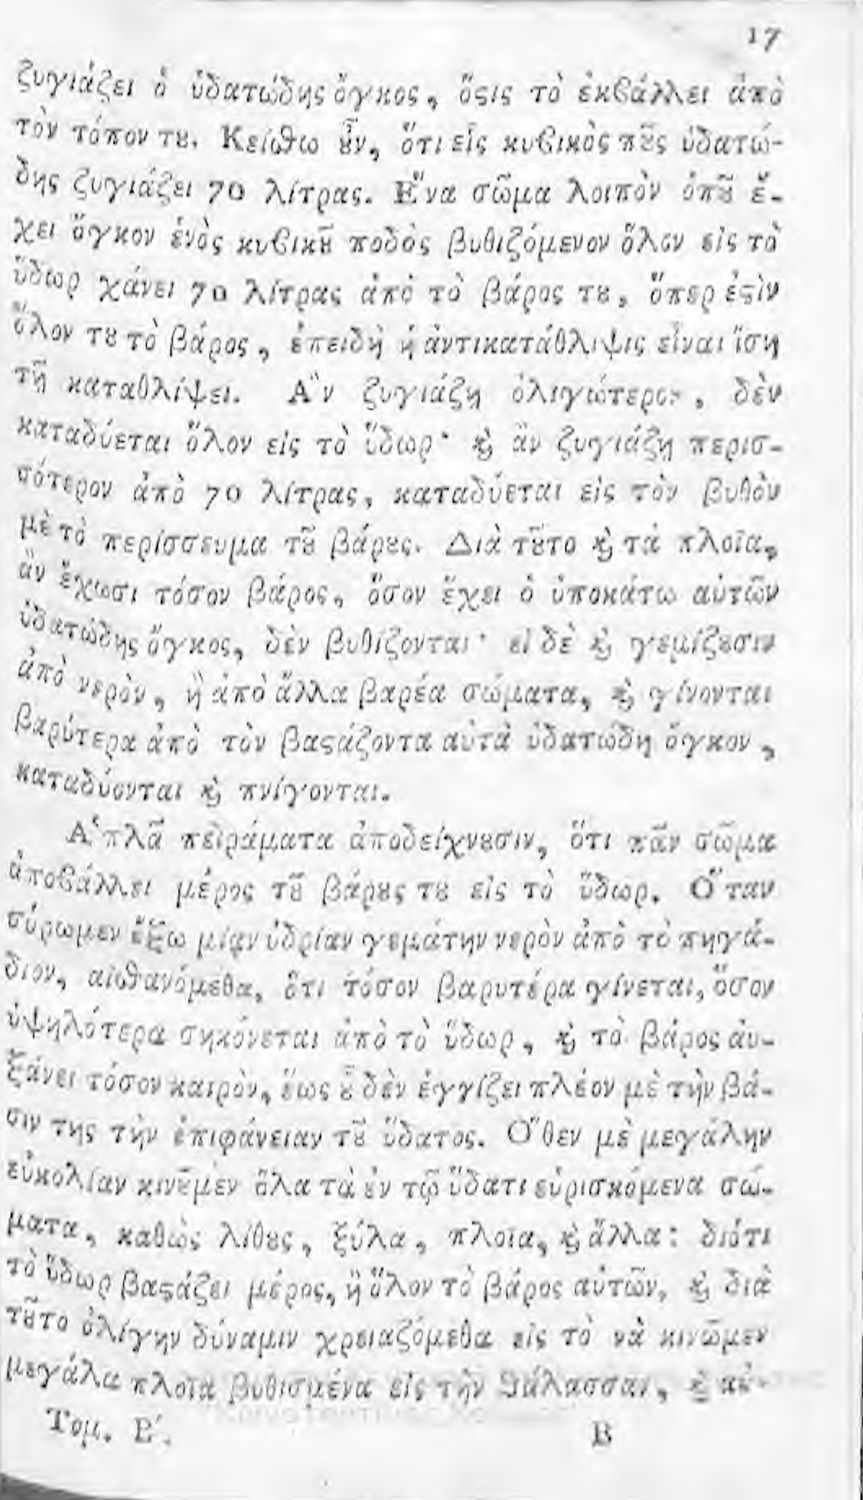 17
ζυγιάζει ὁ ὑδατώδης ὄγκος, ὅςις τὸ ἐκβάλλει ἀπὸ
τὸν τόπον τȣ. Κείσθω ȣ̓͂ν, ὅτι εἷς κυβικὸς πȣ͂ς ὑδατώ-
δης ζυγιάζει 70 λίτρας. Ἕνα σῶμα λοιπὸν ὁπȣ͂ ἔ-
χει ὄγκον ἑνὸς κυβικȣ͂ ποδὸς βυθιζόμενον ὅλον εἰς τὸ
ὕδωρ χάνει 70 λίτρας ἀπὸ τὸ βάρος τȣ, ὅπερ ἐςὶν
ὅλον τȣ τὸ βάρος, ἐπειδὴ ἡ ἀντικατάθλιψις εἶναι ἴση
τῇ καταθλίψει. Ἂν ζυγιάζῃ ὀλιγώτερον, δὲν
καταδύεται ὅλον εἰς τὸ ὕδωρ· ϗ̀ ἂν ζυγιάζῃ περισ-
σότερον ἀπὸ 70 λίτρας, καταδύεται εἰς τὸν βυθὸν
μὲ τὸ περίσσευμα τȣ͂ βάρȣς. Διὰ τȣ͂το ϗ̀ τὰ πλοῖα,
ἂν ἔχωσι τόσον βάρος, ὅσον ἔχει ὁ ὑποκάτω αὐτῶν
ὑδατώδης ὄγκος, δὲν βυθίζονται· εἰ δὲ ϗ̀ γεμίζȣσιν
ἀπὸ νερὸν, ἢ ἀπὸ ἄλλα βαρέα σώματα, ϗ̀ γίνονται
βαρύτερα ἀπὸ τὸν βαςάζοντα αὐτὰ ὑδατώδη ὄγκον,
καταδύονται ϗ̀ πνίγονται.
Ἁπλᾶ πειράματα ἀποδείχνȣσιν, ὅτι πᾶν σῶμα
ἀποβάλλει μέρος τȣ͂ βάρȣς τȣ εἰς τὸ ὕδωρ. Ὅταν
σύρωμεν ἔξω μίαν ὑδρίαν γεμάτην νερὸν ἀπὸ τὸ πηγά-
διον, αἰσθανόμεθα, ὅτι τόσον βαρυτέρα γίνεται, ὅσον
ὑψηλότερα σηκόνεται ἀπὸ τὸ ὕδωρ, ϗ̀ τὸ βάρος αὐ-
ξάνει τόσον καιρὸν, ἕως ȣ̔͂ δὲν ἐγγίζει πλέον μὲ τὴν βά-
σιν της τὴν ἐπιφάνειαν τȣ͂ ὕδατος. Ὅθεν μὲ μεγάλην
εὐκολίαν κινȣ͂μεν ὅλα τὰ ἐν τῷ ὕδατι εὑρισκόμενα σώ-
ματα, καθὼς λίθȣς, ξύλα, πλοῖα, ϗ̀ ἄλλα: διότι
τὸ ὕδωρ βαςάζει μέρος, ἢ ὅλον τὸ βάρος αὐτῶν, ϗ̀ διὰ
τȣ͂το ὀλίγην δύναμιν χρειαζόμεθα εἰς τὸ νὰ κινῶμεν
μεγάλα πλοῖα βυθισμένα εἰς τὴν ϑάλασσαν, ϗ̀ αὐ-
Τομ. Β΄. Β